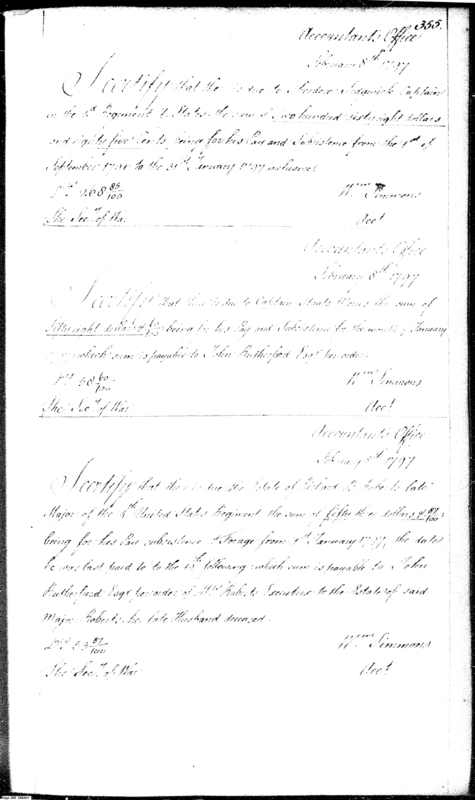 355.
Accountants Office
February 8th 1797
I certify that there is due to Theodore Sedgwick Captain
in the 3d Regiment U. States, the sum of Two hundred sixty eight dollars
and eighty five Cents, being for his Pay and Subsistence from the 1st of
September to the 31st January 1797 inclusive
268 85/100 Wm Simmons
The Secy of War Acct
Accountants Office
February 8th 1797
I certify that there is due to Captain Staats Morris the sum of
fifty eight dollars & 60/100 being for his Pay and Subsistence for the month of January
1797 which sum is payable to John Rutherford Esqr per order
58 60/100 Wm Simmons
The Secy of War Acct
Accountants Office
February 8th 1797
I certify that there is due the Estate of Richard B. Roberts late
Major of the 4th United States Regiment the sum of fifty three dollars & 87/100
being for his Pay subsistence & Forage from 1st January 1797, the date
he was last paid to to the following, which sum is payable to John
Rutherford Esqr per order of Mrs Roberts Executrix to the Estate of said
Major Roberts, her late Husband deceased.
53 87/100 Wm Simmons
The Secy of War Acct